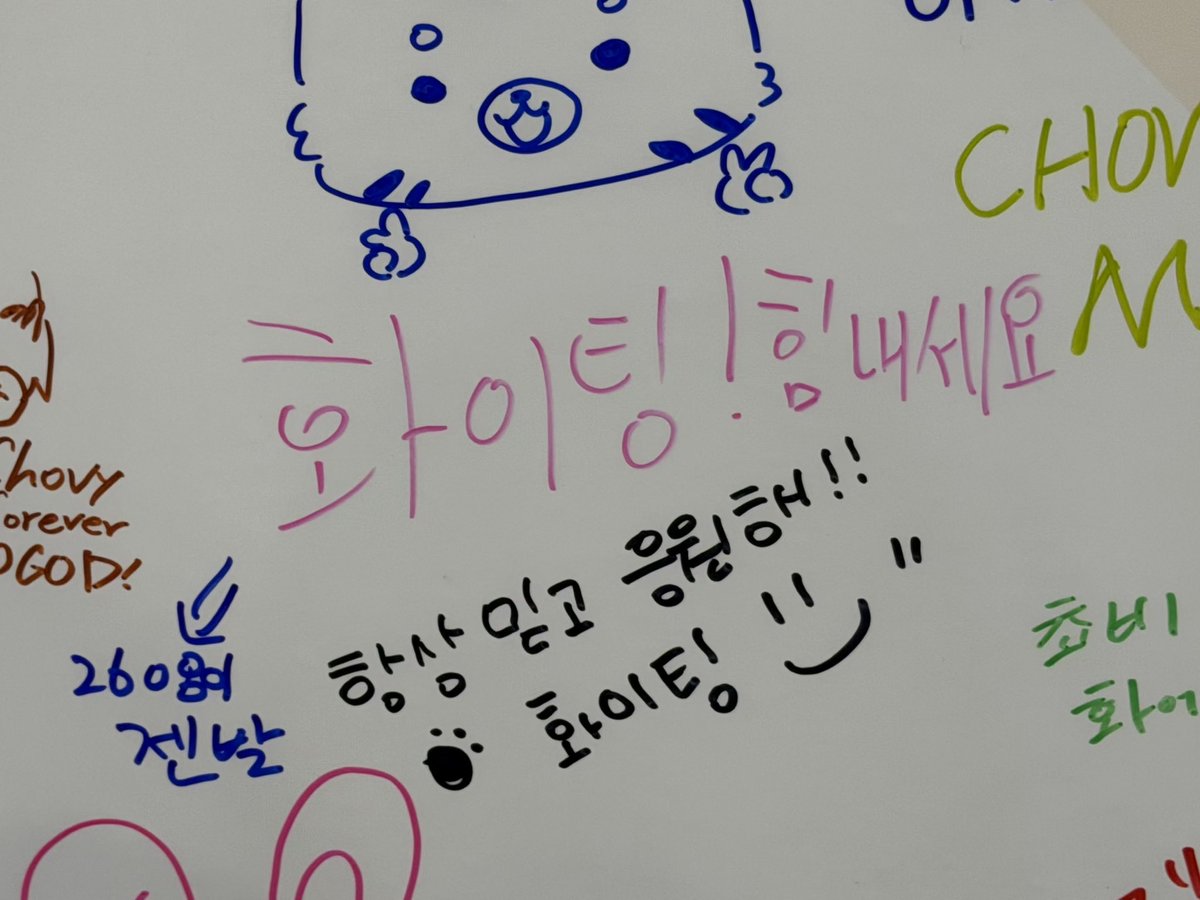 CHOV
M
화이팅! 힘내세요
Chovy
orever
OGOD!
항상 믿고 응원해!!
화이팅
젠발
쵸비